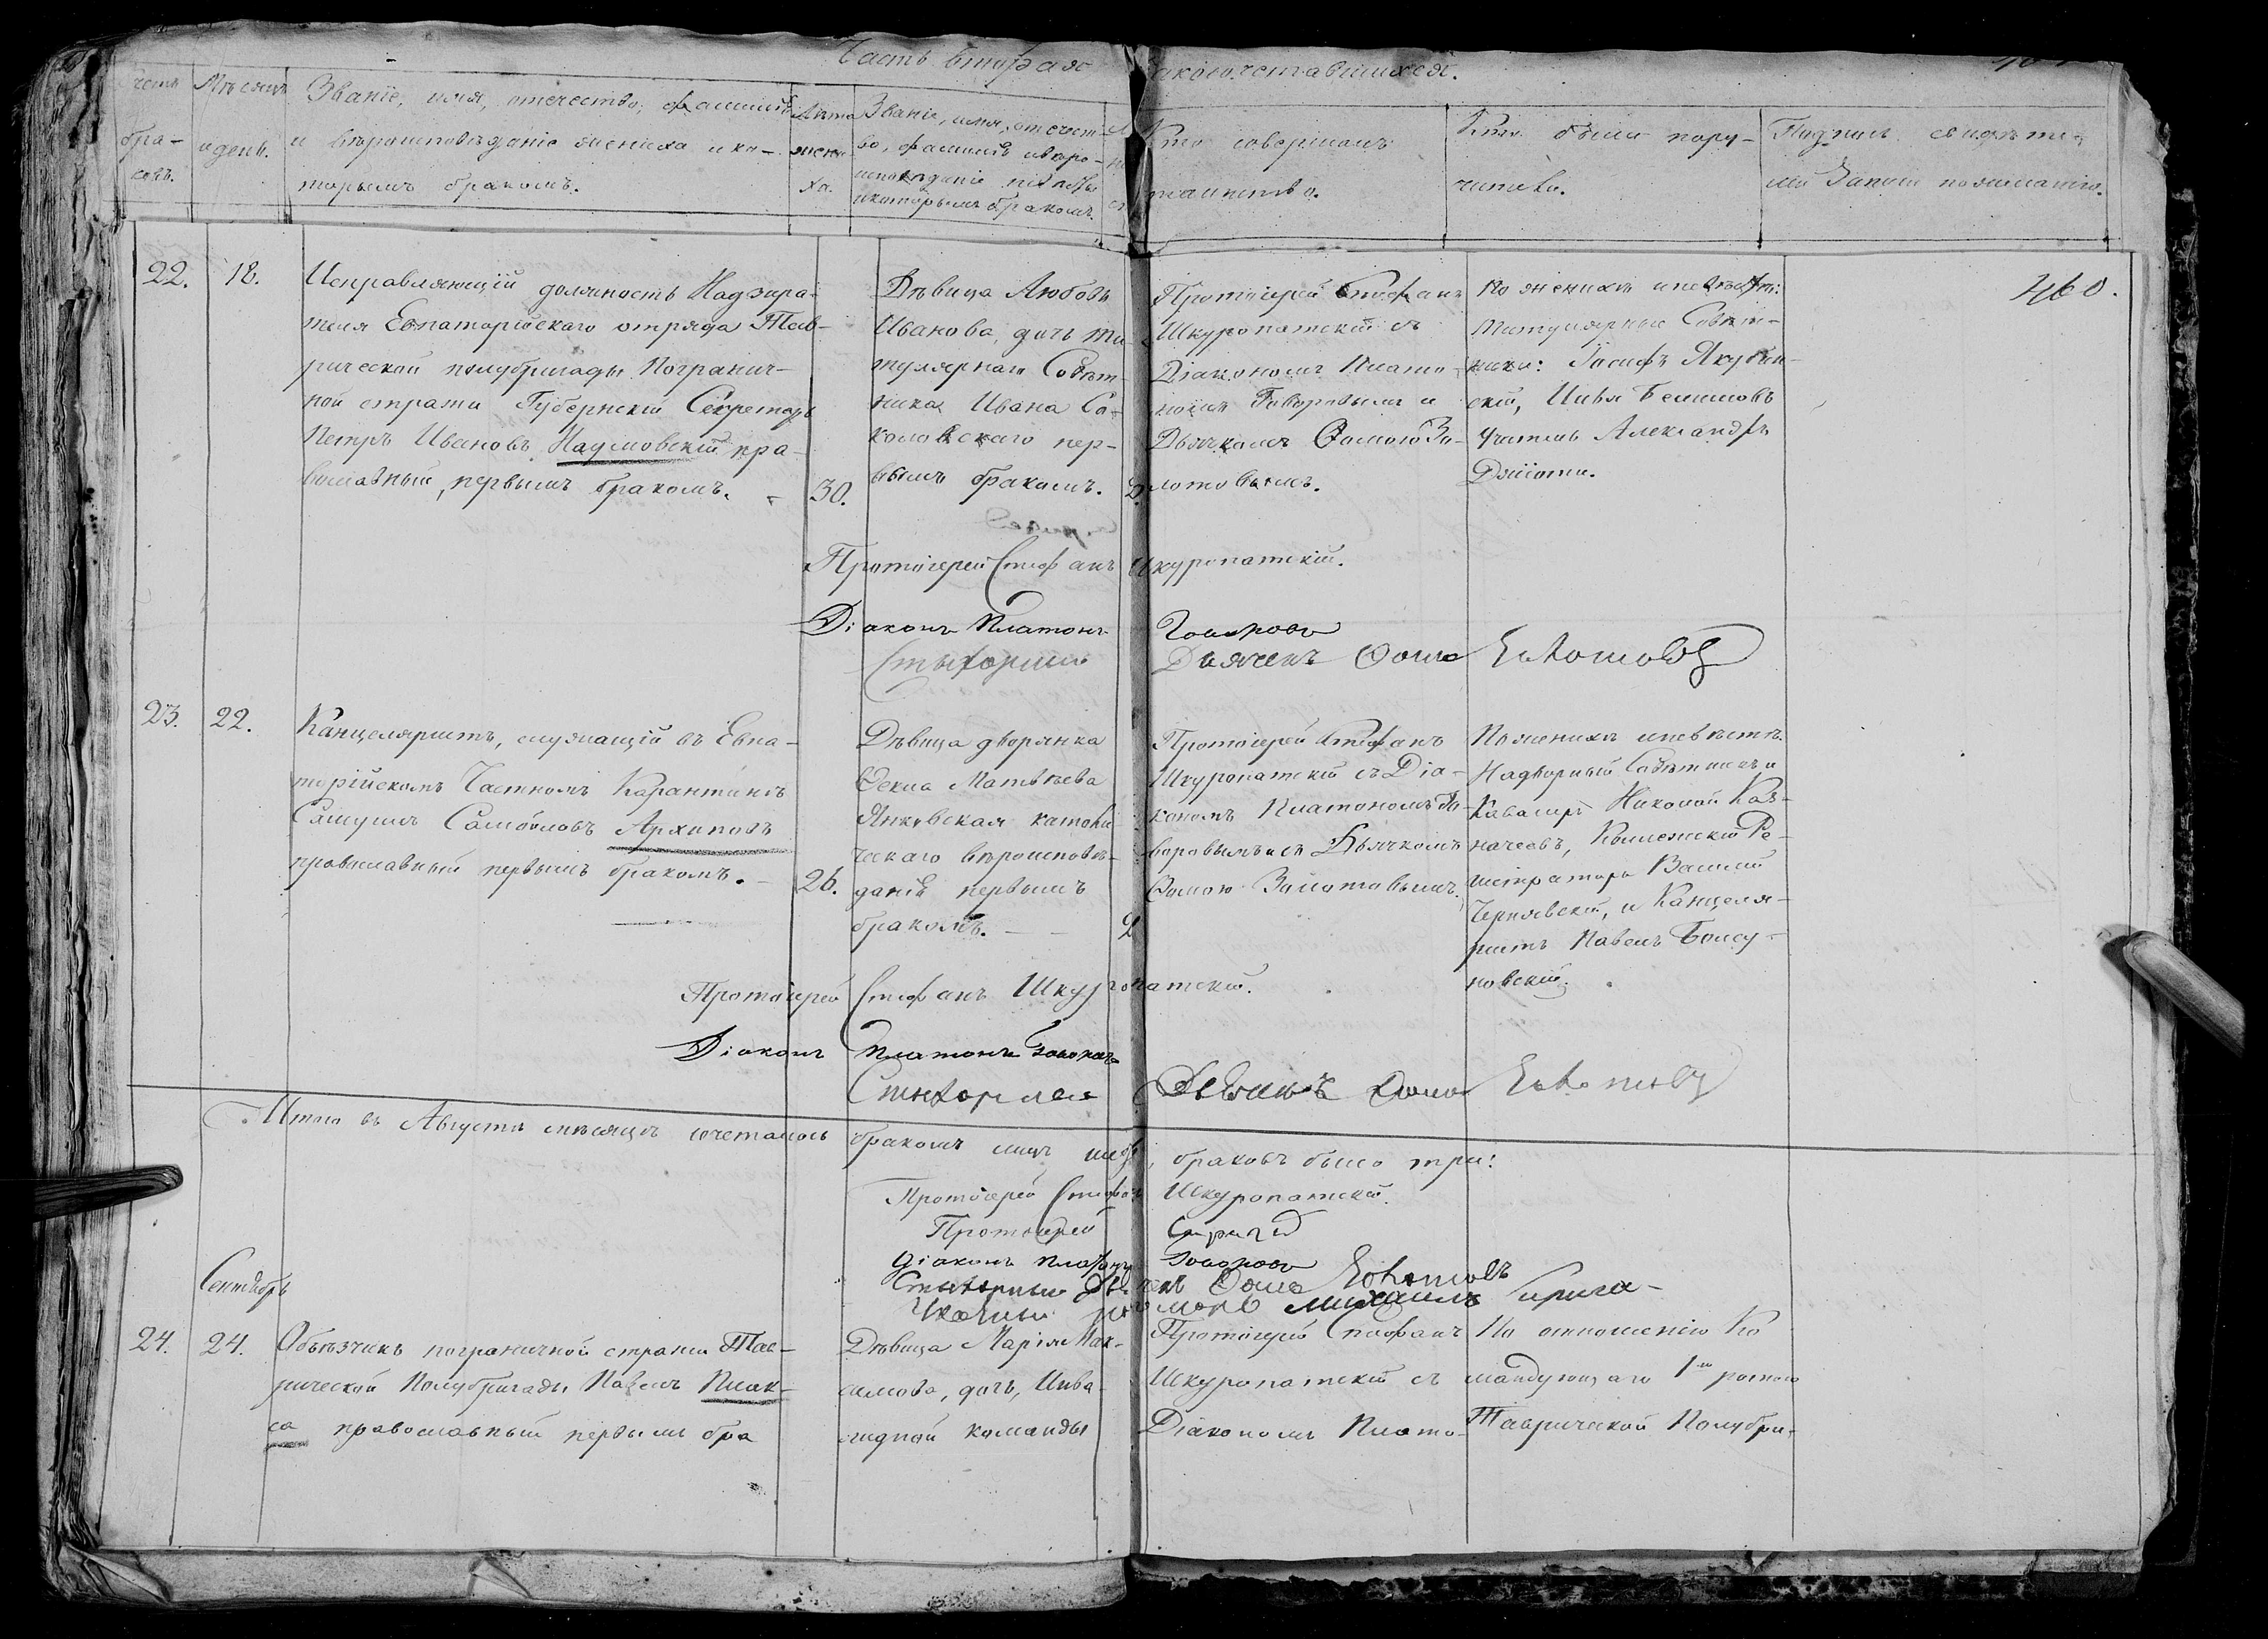 Часть вторая
акосочетавшихся.
Счетъ
бра-
ковъ.
Мѣсяцъ
и день.
Званіе, имя, отечество, фамилія
и вѣроисповѣданіе жениха и ко-
торымъ бракомъ.
Лѣта
жени-
ха.
Званіе, имя, отечест-
во, фамилія и вѣро-
исповѣданіе невѣсты
и которымъ бракомъ.
Кто совершалъ
таинство.
Кто были пору-
чители.
Подписи свидѣте-
лей записи по желанію.
460.
22.
18.
Исправляющій должность Надзира-
теля Евпаторійскаго отряда Тав-
рической полубригады Погранич-
ной стражи Губернскій Секретарь
Петръ Ивановъ Наумовскій пра-
вославный, первымъ бракомъ.
30.
Дѣвица Любовь
Иванова, дочь ти
тулярнаго Совѣт-
ника Ивана Со-
коловскаго пер-
вымъ бракомъ.
Протоіерей Стефанъ
Шкуропатскій съ
Діакономъ Плато-
номъ Говоровымъ и
Дьячкомъ Ѳомою Зо-
лотовымъ.
По женихѣ и невѣстѣ:
титулярные Совѣт-
ники: Іосифъ Якубов-
скій, Илья Белимовъ
Учитель Александръ
Протоіерей Стефанъ Шкуропатскій.
Діаконъ Платонъ Говоровъ
Стихарный Дьячекъ Ѳома Золотовъ
23.
22.
Канцеляристъ, служащій въ Евпа-
торійскомъ Частномъ Карантинѣ
Самуилъ Самойловъ Архиповъ
православный первымъ бракомъ.
26.
Дѣвица дворянка
Ѳекла Матвѣева
Янковская католи
ческаго вѣроисповѣ-
данія первымъ
бракомъ.
2
Протоіерей Стефанъ
Шкуропатскій съ Діа-
кономъ Платономъ Го-
воровымъ и съ Дьячкомъ
Ѳомою Золотовымъ.
По женихѣ и невѣстѣ
Надворный Совѣтникъ и
Кавалеръ Николай Каз-
начеевъ, Коллежскій Ре-
гистраторъ Василій
Чернявскій, и Канцеля-
ристъ Павелъ Болсу-
новскій.
Протоіерей Стефанъ Шкуропатскій.
Діаконъ Платонъ Говоровъ
Стихарный Дьячекъ Ѳома Золотовъ
Итого въ Августѣ мѣсяцѣ сочеталось бракомъ лицъ шесть, браковъ было три:
Протоіерей Стефанъ Шкуропатскій.
Протоіерей
Діаконъ Платонъ Говоровъ
Стихарный Дьячекъ Ѳома Золотовъ
пономарь Михаилъ
Сентябрь
24.
24.
Объѣзчикъ пограничной стражи Тав-
рической Полубригады Павелъ Плак-
са православный первымъ бра
Дѣвица Марія Мак-
симова, дочь, Инва-
лидной команды
Протоіерей Стефанъ
Шкуропатскій съ
Діакономъ Плато-
По отношенію Ко
мандующаго 1й ротою
Таврической Полубри-